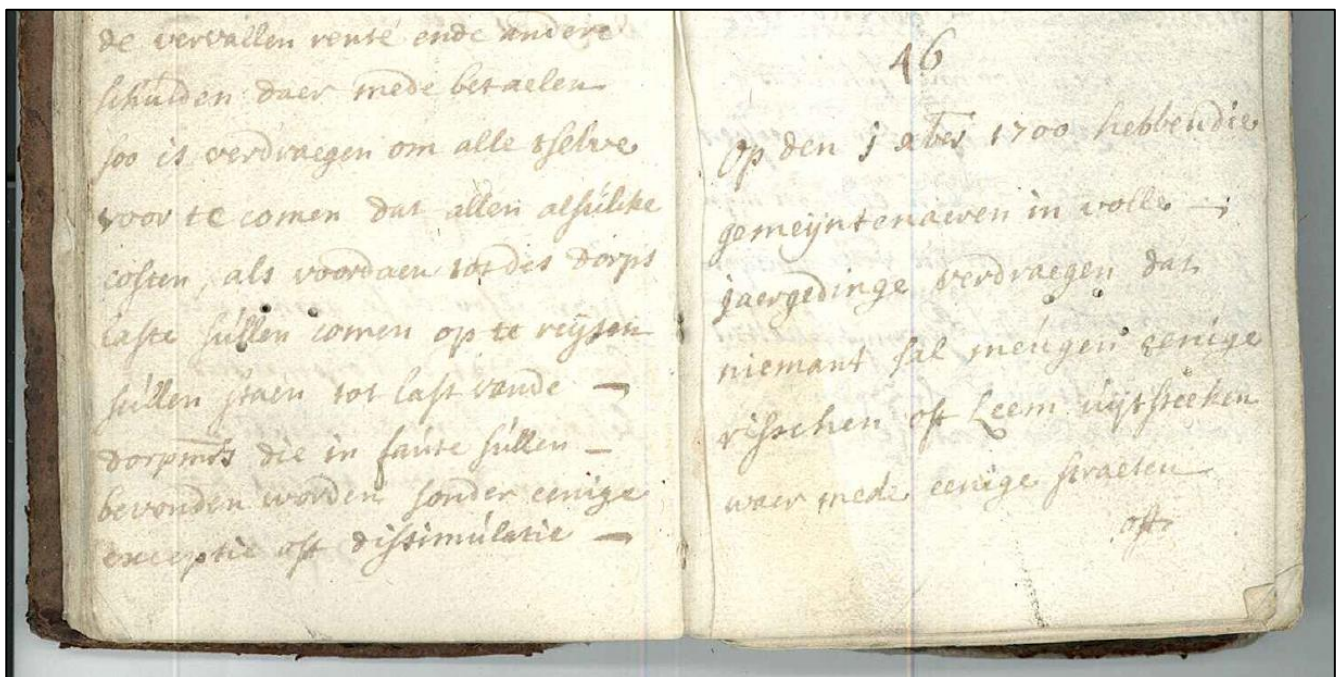 de vervallen rente ende andere
schulden daer mede betaelen
soo is verdraegen om alle tselve
voor te comen dat allen alsulcke
costen, als voordaen tot des dorps
laste sullen comen op te reijsen
sullen staen tot last vande —
dorpmrs die in faute sullen —
bevonden worden sonder eenige
exceptie oft dissimulatie —
46
Op den j xbris 1700 hebben die
gemeijntenaeren in volle —
jaergedinge verdraegen dat
niemant sal meugen eenige
risschen oft Leem uijtsteeken
waer mede eenige straeten
oft